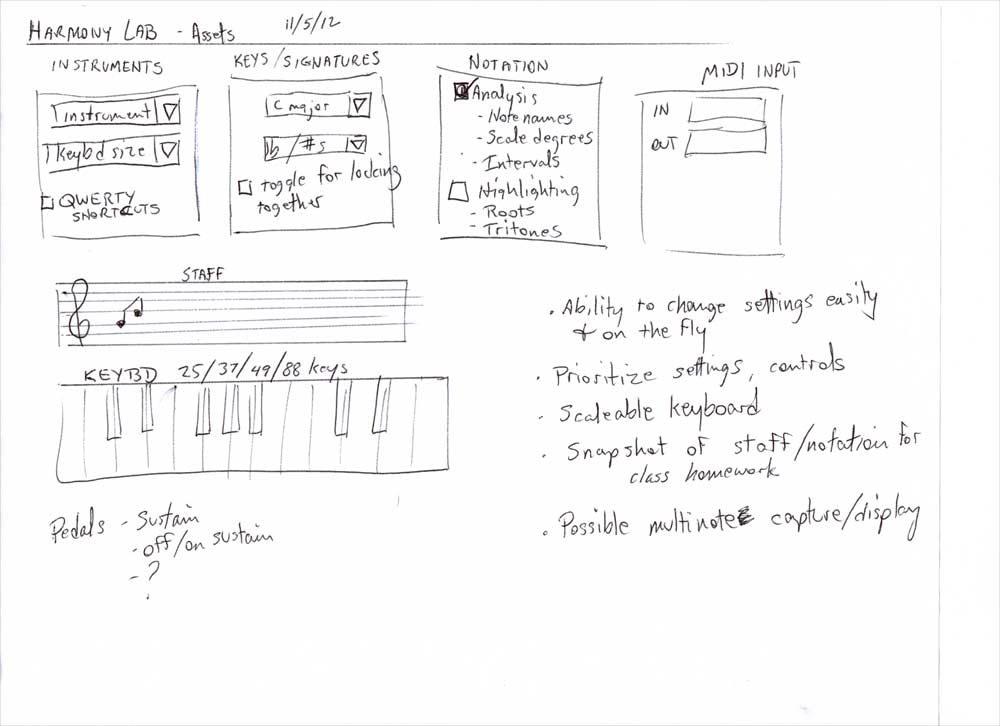 HARMONY LAB - Assets 11/5/12
INSTRUMENTS
Instrument
Keybd size
QWERTY
SHORTCUTS
KEYS/SIGNATURES
C major
b/#s
toggle for locking
together
NOTATION
Analysis
- Note names
- Scale degrees
- Intervals
Highlighting
- Roots
- Tritones
MIDI INPUT
IN
OUT
STAFF
KEYBD 25/37/49/88 keys
Pedals - Sustain
- off/on sustain
- ?
• Ability to change settings easily
+ on the fly
• Prioritize settings, controls
• Scaleable keyboard
• Snapshot of staff/notation for
class homework
• Possible multinote capture/display